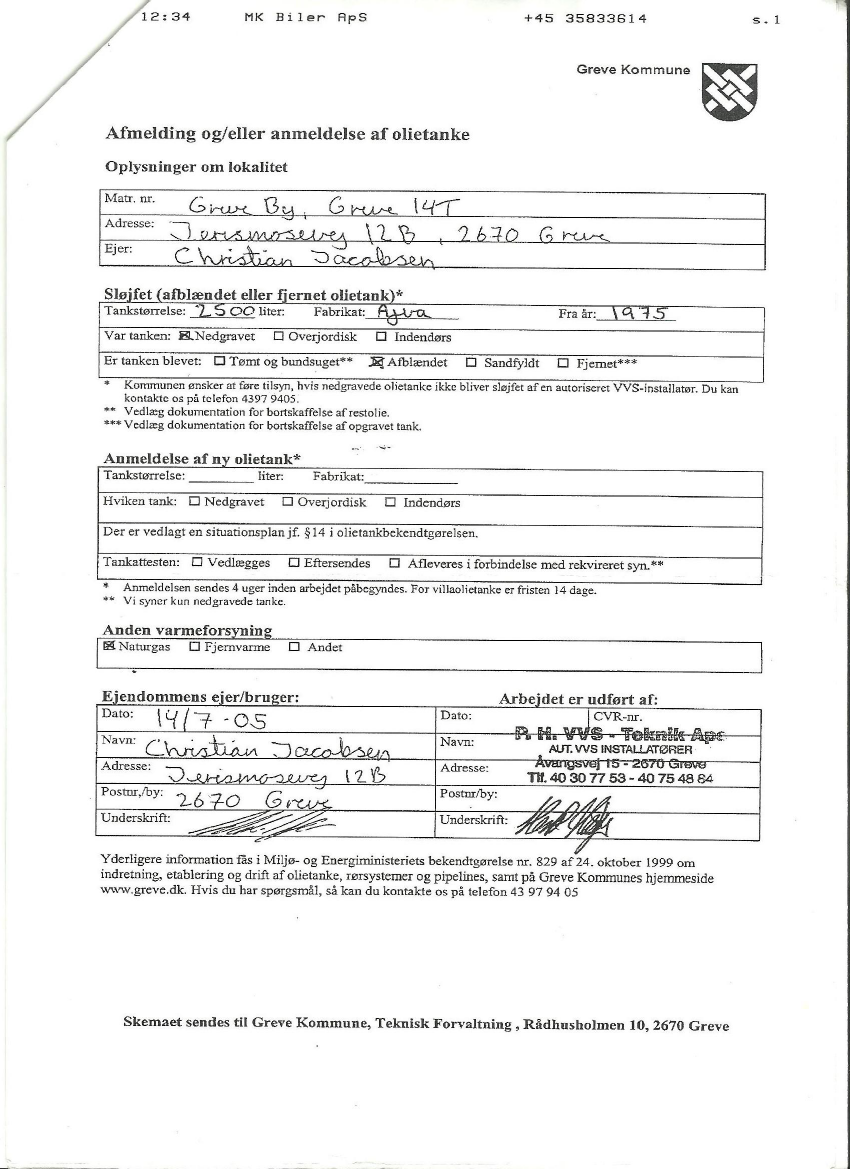 12:34 MK Biler ApS +45 35833614 s.1
Greve Kommune
Afmelding og/eller anmeldelse af olietanke
Oplysninger om lokalitet
Matr. nr. Greve By, Greve 14T
Adresse: Jerismosevej 12B, 2670 Greve
Ejer: Christian Jacobsen
Sløjfet (afblændet eller fjernet olietank)*
Tankstørrelse: 2500 liter: Fabrikat: Ajva Fra år: 1975
Var tanken: ☒ Nedgravet ☐ Overjordisk ☐ Indendørs
Er tanken blevet: ☐ Tømt og bundsuget** ☒ Afblændet ☐ Sandfyldt ☐ Fjernet***
* Kommunen ønsker at føre tilsyn, hvis nedgravede olietanke ikke bliver sløjfet af en autoriseret VVS-installatør. Du kan
kontakte os på telefon 4397 9405.
** Vedlæg dokumentation for bortskaffelse af restolie.
*** Vedlæg dokumentation for bortskaffelse af opgravet tank.
Anmeldelse af ny olietank*
Tankstørrelse: ________ liter: Fabrikat: ____________
Hviken tank: ☐ Nedgravet ☐ Overjordisk ☐ Indendørs
Der er vedlagt en situationsplan jf. §14 i olietankbekendtgørelsen.
Tankattesten: ☐ Vedlægges ☐ Eftersendes ☐ Afleveres i forbindelse med rekvireret syn.**
* Anmeldelsen sendes 4 uger inden arbejdet påbegyndes. For villaolietanke er fristen 14 dage.
** Vi syner kun nedgravede tanke.
Anden varmeforsyning
☒ Naturgas ☐ Fjernvarme ☐ Andet
Ejendommens ejer/bruger: Arbejdet er udført af:
Dato: 14/7-05 Dato: CVR-nr.
Navn: Christian Jacobsen Navn: P. H. VVS - Teknik Aps
AUT. VVS INSTALLATØRER
Adresse: Jerismosevej 12B Adresse: Avangsvej 15 - 2670 Greve
Tlf. 40 30 77 53 - 40 75 48 84
Postnr,/by: 2670 Greve Postnr/by:
Underskrift: Underskrift:
Yderligere information fås i Miljø- og Energiministeriets bekendtgørelse nr. 829 af 24. oktober 1999 om
indretning, etablering og drift af olietanke, rørsystemer og pipelines, samt på Greve Kommunes hjemmeside
www.greve.dk. Hvis du har spørgsmål, så kan du kontakte os på telefon 43 97 94 05
Skemaet sendes til Greve Kommune, Teknisk Forvaltning , Rådhusholmen 10, 2670 Greve